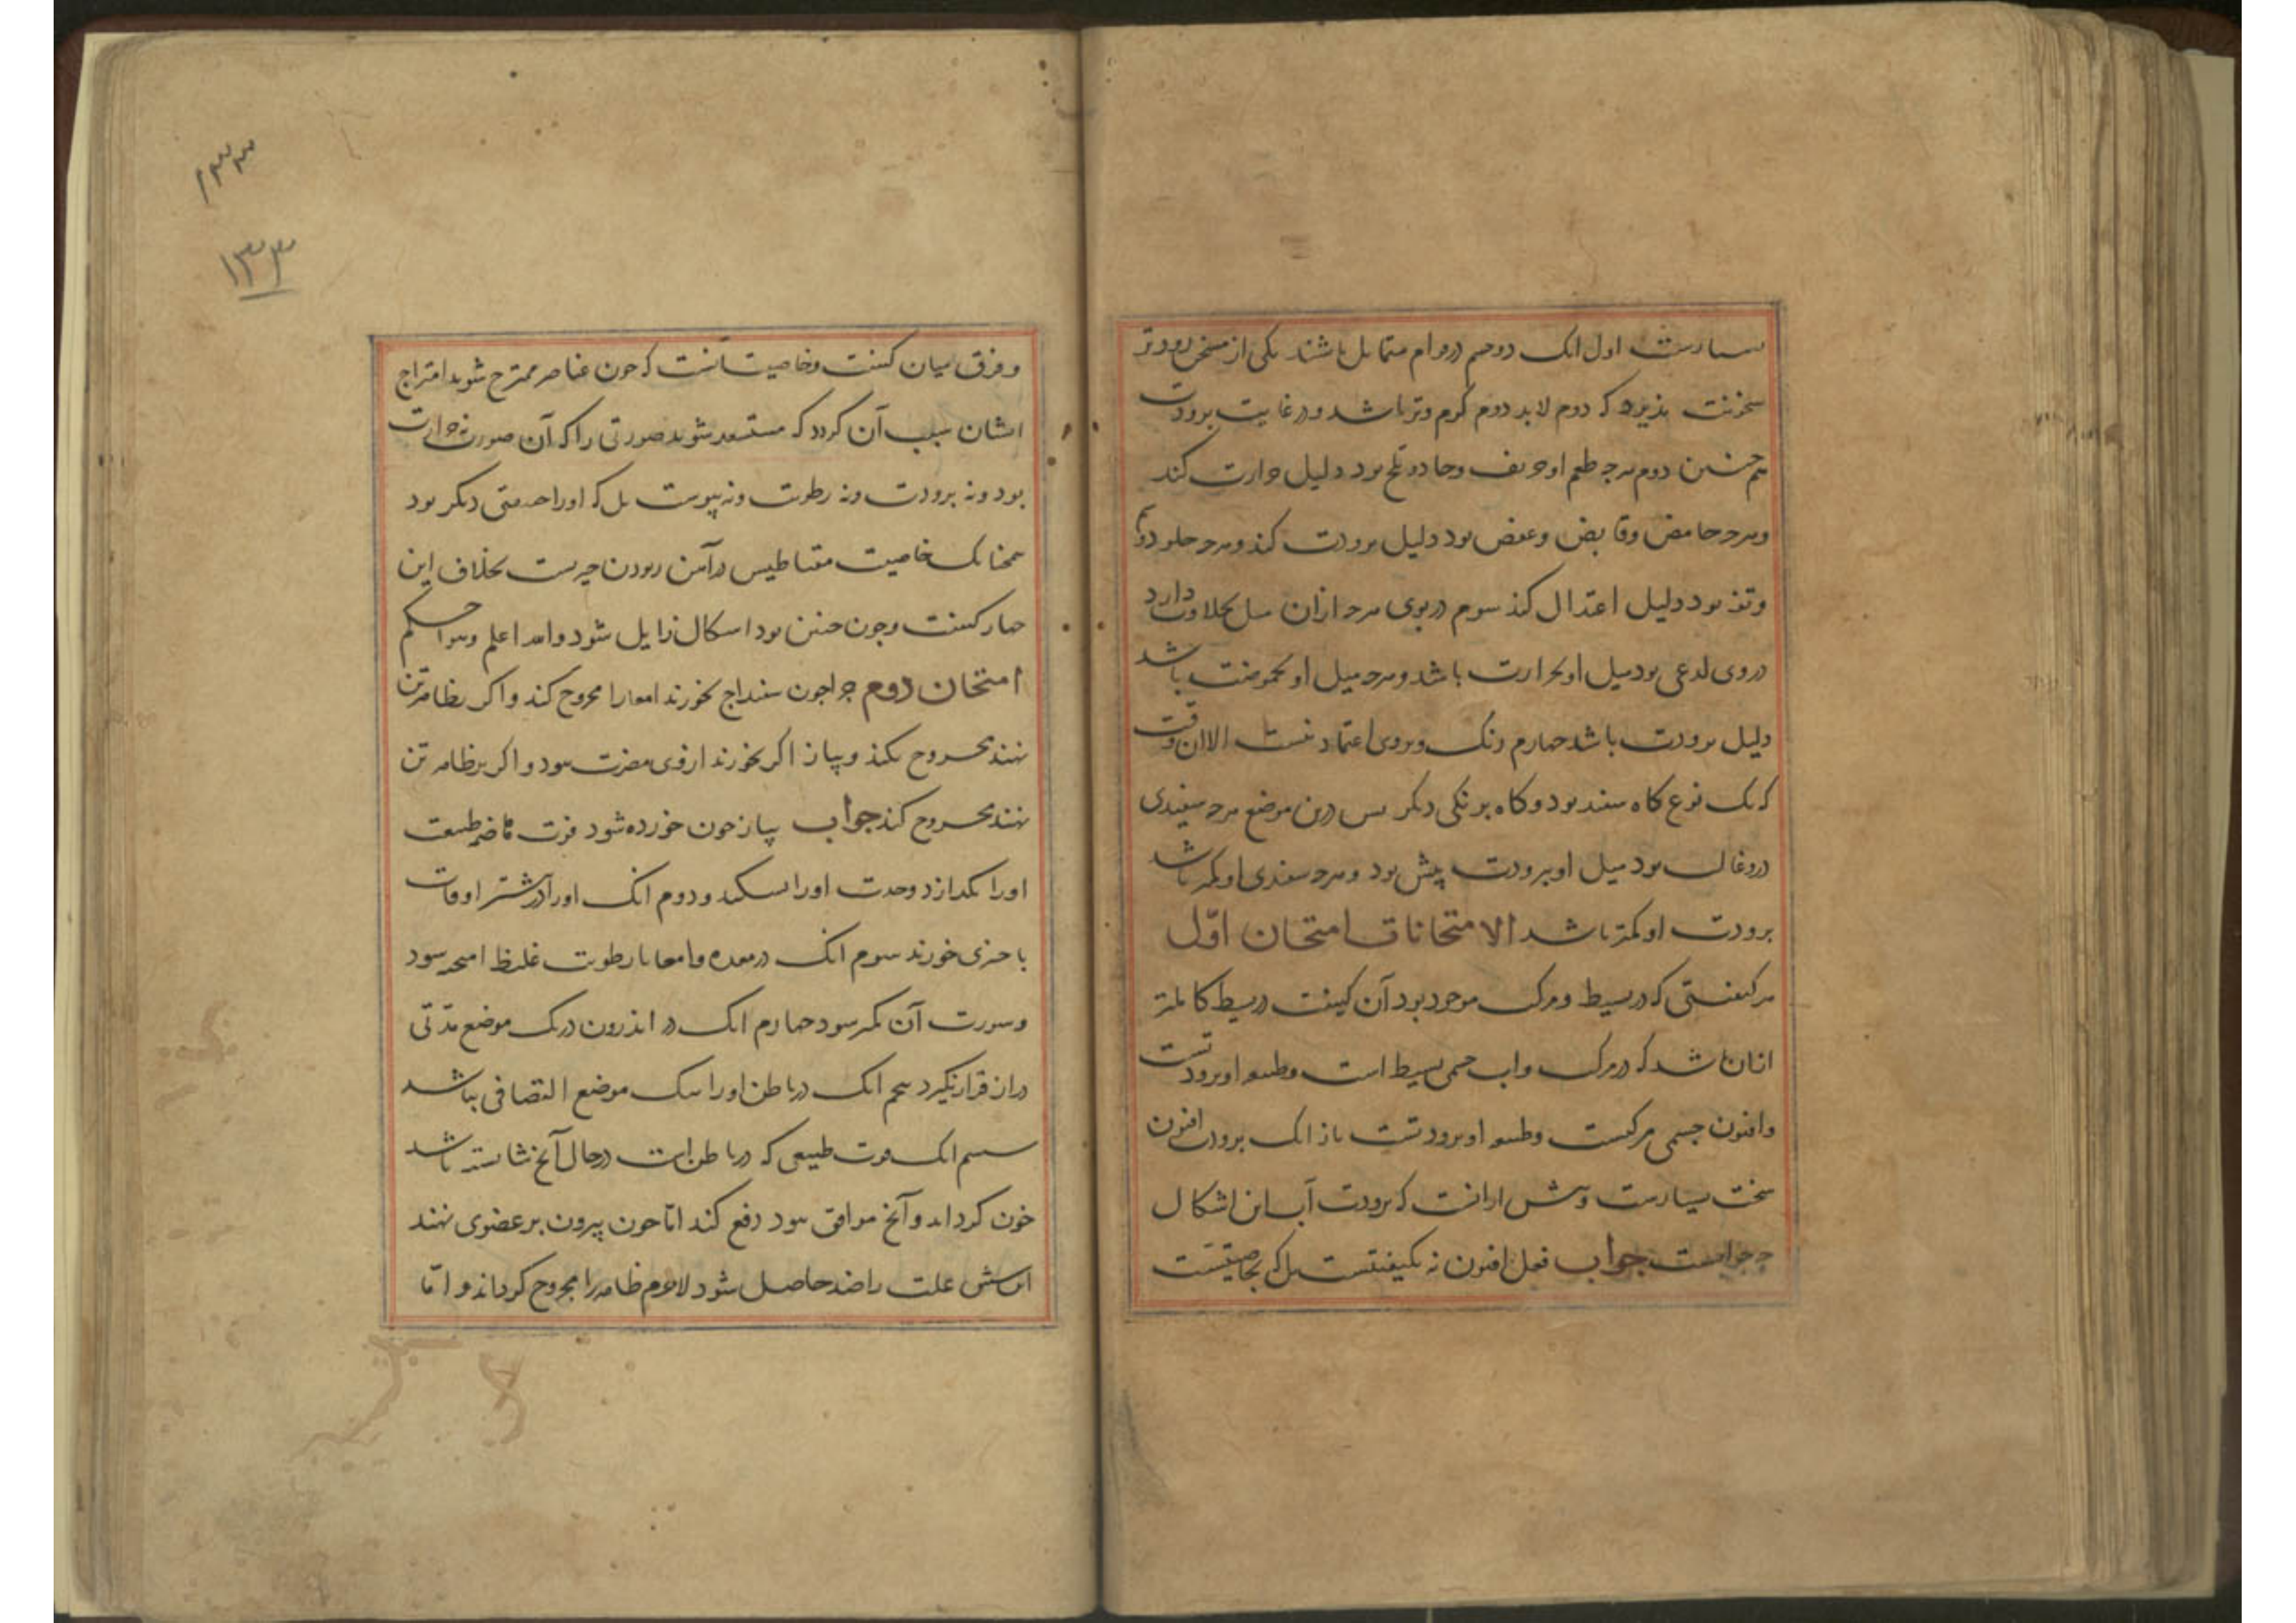 بسیارست اول انک دو جسم در قوام متقابل باشند یکی از مسخن زودتر
سخونت پذیرد که دوم لابد دوم گرم وتر باشد و در غایت برودت
هم چنین دوم هرچه طعم او حریف وحاد و تلخ بود دلیل حرارت کند
وهرچه حامض وقابض وعفص بود دلیل برودت کند وهرچه حلو
وتفه بود دلیل اعتدال کند سوم در بوی هرچه ازان میل بحلاوت دارد
در وی لدعی بود میل او بحرارت باشد وهرچه میل او بحموضت باشد
دلیل برودت باشد چهارم رنک وبروی اعتماد نیست الا ان وقت
که یک نوع کاه سفید بود وکاه برنکی دیکر بس درین موضع هرچه سپیدی
درو غالب بود میل او ببرودت بیش بود وهرچه سفیدی او کمتر باشد
برودت او کمتر باشد الامتحانات امتحان اوّل
هر کیفیتی که در بسیط ومرکب موجود بود آن کیفیت در بسیط کاملتر
ازان باشد که در مرکب واب جسمی بسیط است وطبیعه او برودتست
وافیون جسمی مرکبست وطبیعه او برودتست باز انک برودت افیون
سخت بسیارست وبیش ازانست که برودت آب این اشکال
چه جوابست جواب فعل افیون نه بکیفیتست بل که بخاصیتست
وفرق میان کیفیت وخاصیت آنست که چون عناصر ممتزج شوند امتزاج
ایشان سبب آن کردد که مستعد شوند صورتی را که آن صورت نه حرارت
بود ونه برودت ونه رطوبت ونه یبوست بل که اورا خدمتی دیکر بود
همچنانک خاصیت مقناطیس در آهن ربودن چیزیست بخلاف این
چهار کیفیت وچون چنین بود اشکال زایل شود والله اعلم وهو احکم
امتحان دوم چرا چون سفیداج بخورند امعا را مجروح کند واکر بظاهر تن
نهند مجروح نکند وپیاز اکر بخورند از وی مضرت نبود واکر بر ظاهر تن
نهند مجروح کند جواب پیاز چون خورده شود قوت هاضمه طبیعت
اورا بکدازد وحدت اورا بشکند ودوم انک اورا در بیشتر اوقات
با چیزی خورند سوم انک در معده وامعا با رطوبت غلیظ امیخته شود
وسورت آن کمتر شود چهارم انک در اندرون در یک موضع مدّتی
دراز قرار نکیرد پنجم انک در باطن اورا بیک موضع التصاقی نباشد
ششم انک قوت طبیعی که در باطن است در حال آنچ شایسته باشد
خون کرداند وآنچ موافق نبود دفع کند امّا چون بیرون بر عضوی نهند
این شش علت را ضد حاصل شود لاجرم ظاهر را مجروح کرداند وامّا
۱۳۳
۱۳۳